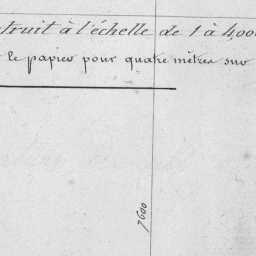 truit à l'échelle de 1 à 4,00
le papier pour quatre mètres sur
7600